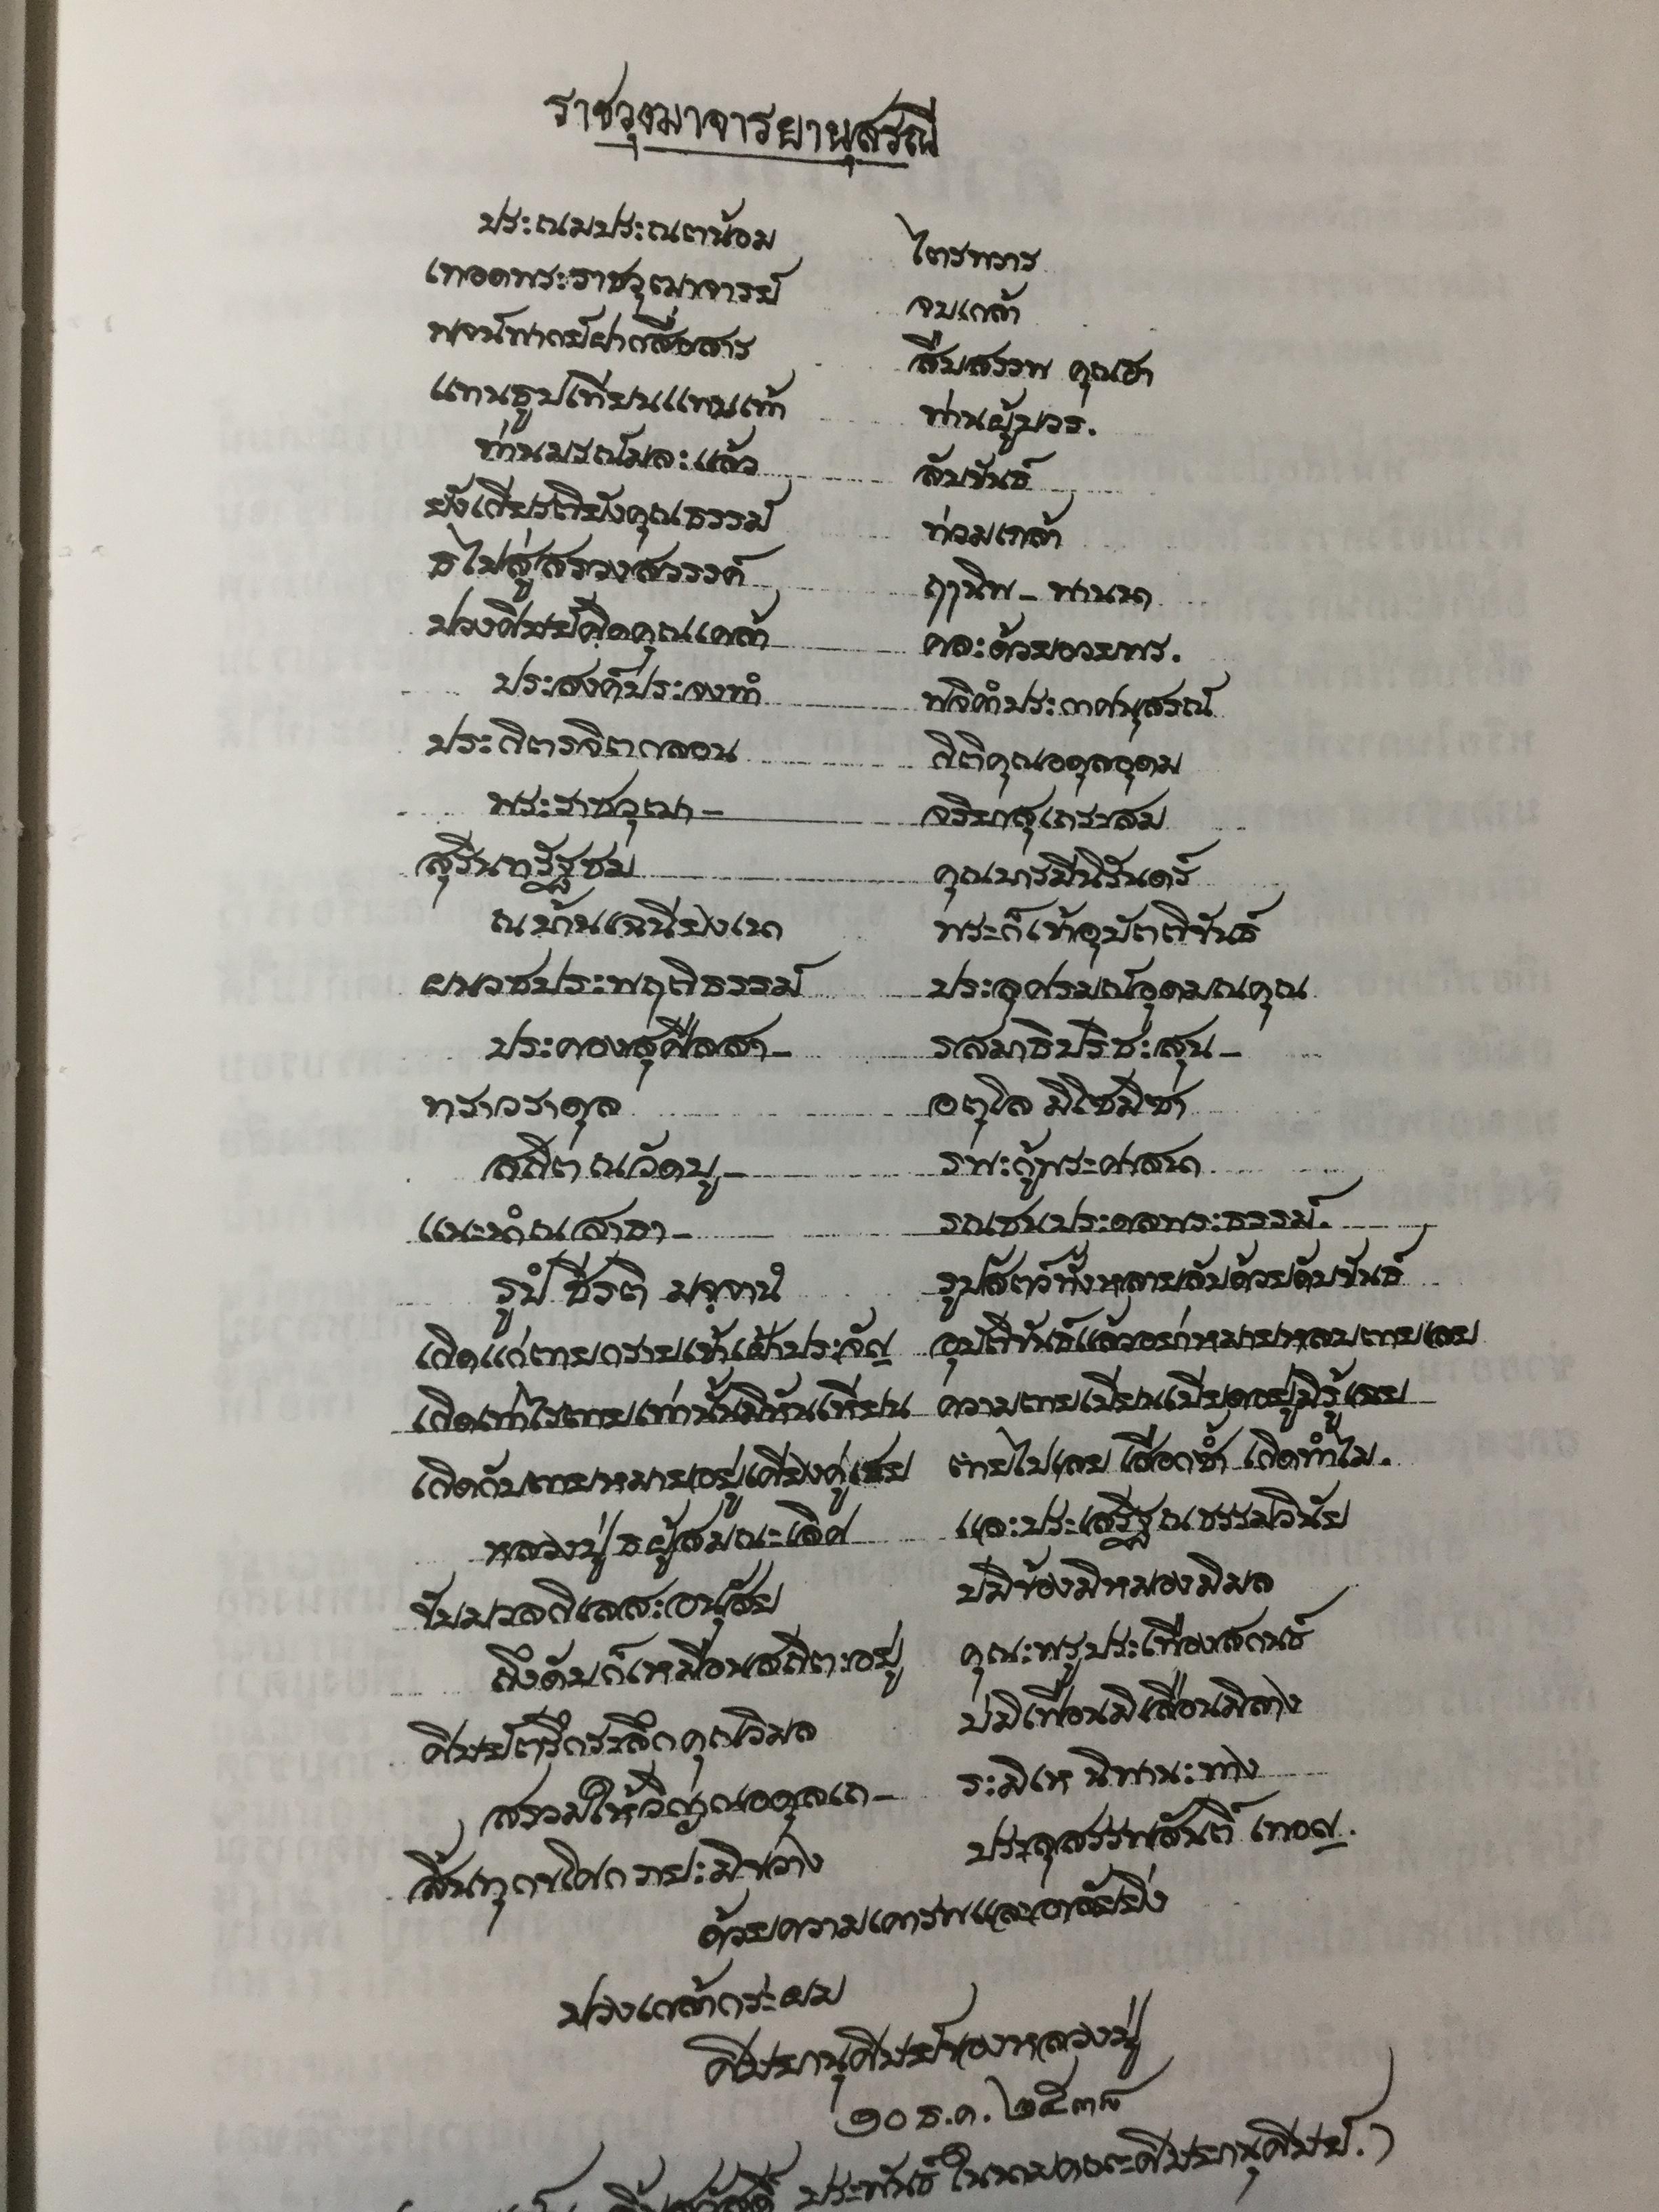 ราชวุฒาจารยานุสรณ์
ประณมประณตน้อม ไตรทวาร
เทอดพระราชวุฒาจารย์ จบเกล้า
พจน์พากย์ฝากสื่อสาร สืบสรรพ คุณฮา
แทนธูปเทียนแทนเท้า ท่านผู้บวร.
ท่านมรณ์มละแล้ว ลับขันธ์
ยังเกียรติยังคุณธรรม์ ท่วมเกล้า
ธไปสู่สรวงสวรรค์ ฤๅนิพ- พานนา
ปวงศิษย์คิดคุณเคล้า คละด้วยอวยพร.
ประสงค์ประจงทำ พจิคำประกาศนุสรณ์
ประกิตรจิตกลอน กิติคุณอดุลอุดม
พระราชวุฒา- จริยาสุเถระสม
สุรินทรัฐชม คุณบารมีนิรันดร์
ณบ้านเฉนียงเนา พระก็เข้าอุปัตติขันธ์
ผนวชประพฤติธรรม์ ประดุศรมณ์อุดมณคุณ
ประคองสุศีลสา- รสมาธิปริชะสุน-
ทราวราดุล อตุโล มิโซมิซา
สถิต ณวัดบู- รพะกู้พระศาสนา
แนะนำณสาธา- รณชนประดลพระธรรม์.
รูปํ ชีรติ มจฺจานํ รูปสัตว์ทั้งหลายลับด้วยดับขันธ์
เกิดแก่ตายกรายเข้าเฝ้าประจัญ อุบัติขันธ์แล้วอย่าหมายหลบตายเลย
เกิดเท่าไรตายเท่านั้นมิหันเหียน ความตายเบียนเบียดอยู่มิรู้เฉย
เกิดกับตายหมายอยู่เคียงคู่เชย ตายไปเลย เลือกซ้ำ เกิดทำไม.
หลวงปู่ธผู้สมณะเลิศ และประเสริฐณธรรมวินัย
ขับมวลกิเลสะอนุสัย บมิข้องมิหมองมิมล
ถึงดับก็เหมือนสถิตะอยู่ คุณะพรูประเทืองสกนธ์
ศิษย์ตรึกระลึกคุณวิมล บมิเฟือนมิเลือนมิลาง
สรวมให้วิญญณอดุลเถ- ระมิเห นิพานะทาง
สิ้นทุกขโศก ภยะมิขวาง ประลุสรรพสันติ์ เทอญ.
ด้วยความเคารพและอาลัยยิ่ง
ปวงเกล้ากระผม
ศิษยานุศิษย์ของหลวงปู่
๑๐ ธ.ค. ๒๕๓๘
ประพันธ์ ในนามคณะศิษยานุศิษย์.)